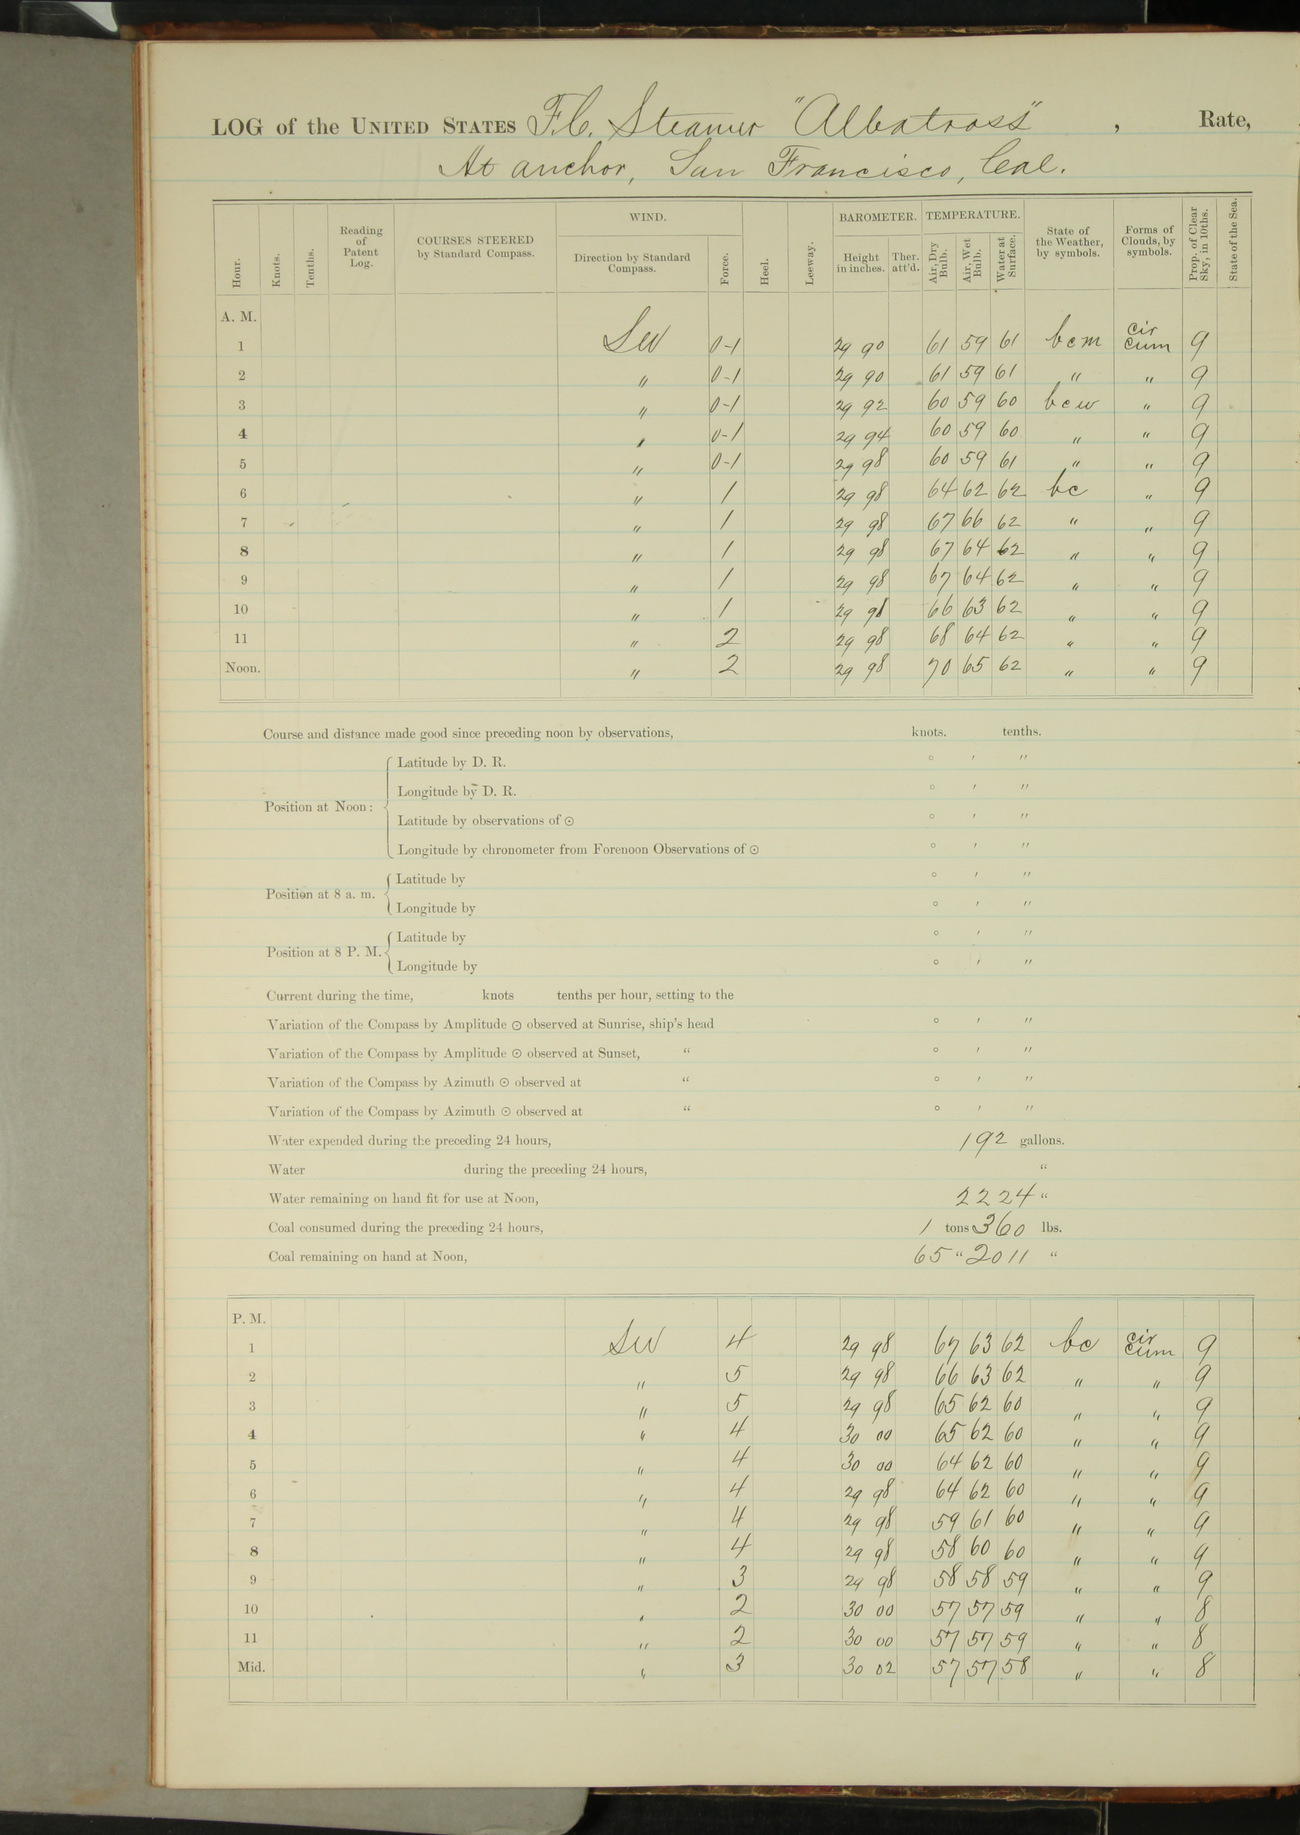 LOG of the UNITED STATES F.C. Steamer "Albatross" , Rate,
At anchor, San Francisco, Cal.
Hour. Knots. Tenths. Reading of Patent Log. COURSES STEERED by Standard Compass. WIND. Direction by Standard Compass. Force. Heel. Leeway. BAROMETER. Height in inches. Ther. att'd. TEMPERATURE. Air, Dry Bulb. Air, Wet Bulb. Water at Surface. State of the Weather, by symbols. Forms of Clouds, by symbols. Prop. of Clear Sky, in 10ths. State of the Sea.
A. M.
1 SW 0-1 29 90 61 59 61 bcm cir cum 9
2 " 0-1 29 90 61 59 61 " " 9
3 " 0-1 29 92 60 59 60 bcw " 9
4 " 0-1 29 94 60 59 60 " " 9
5 " 0-1 29 98 60 59 61 " " 9
6 " 1 29 98 64 62 62 bc " 9
7 " 1 29 98 67 66 62 " " 9
8 " 1 29 98 67 64 62 " " 9
9 " 1 29 98 67 64 62 " " 9
10 " 1 29 98 66 63 62 " " 9
11 " 2 29 98 68 64 62 " " 9
Noon. " 2 29 98 70 65 62 " " 9
Course and distance made good since preceding noon by observations, knots. tenths.
Position at Noon: Latitude by D. R. ° ′ ″
Longitude by D. R. ° ′ ″
Latitude by observations of ☉ ° ′ ″
Longitude by chronometer from Forenoon Observations of ☉ ° ′ ″
Position at 8 a. m. Latitude by ° ′ ″
Longitude by ° ′ ″
Position at 8 P. M. Latitude by ° ′ ″
Longitude by ° ′ ″
Current during the time, knots tenths per hour, setting to the
Variation of the Compass by Amplitude ☉ observed at Sunrise, ship's head ° ′ ″
Variation of the Compass by Amplitude ☉ observed at Sunset, " ° ′ ″
Variation of the Compass by Azimuth ☉ observed at " ° ′ ″
Variation of the Compass by Azimuth ☉ observed at " ° ′ ″
Water expended during the preceding 24 hours, 192 gallons.
Water during the preceding 24 hours, "
Water remaining on hand fit for use at Noon, 2224 "
Coal consumed during the preceding 24 hours, 1 tons 360 lbs.
Coal remaining on hand at Noon, 65 " 2011 "
P. M.
1 SW 4 29 98 67 63 62 bc cir cum 9
2 " 5 29 98 66 63 62 " " 9
3 " 5 29 98 65 62 60 " " 9
4 " 4 30 00 65 62 60 " " 9
5 " 4 30 00 64 62 60 " " 9
6 " 4 29 98 64 62 60 " " 9
7 " 4 29 98 59 61 60 " " 9
8 " 4 29 98 58 60 60 " " 9
9 " 3 29 98 58 58 59 " " 9
10 " 2 30 00 57 57 59 " " 8
11 " 2 30 00 57 57 59 " " 8
Mid. " 3 30 02 57 57 58 " " 8